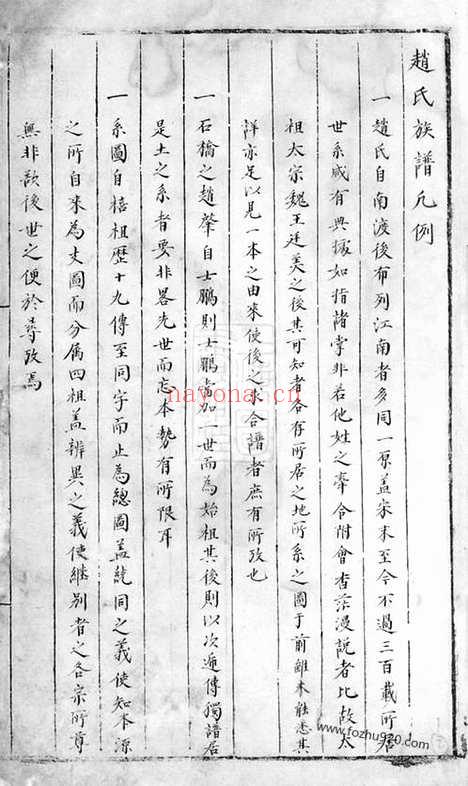 趙氏族譜凡例
一趙氏自南渡後布列江南者多同一原蓋宋末至今不過三百載所居
世系咸有典據如指諸掌非若他姓之牽合附會杳茫漫說者比故太
祖太宗魏王廷美之後其可知者各存所居之地所系之圖于前雖未能悉其
詳亦足以見一本之由來使後之求合譜者庶有所攷也
一石橋之趙肇自士鵬則士鵬當加一世而為始祖其後則以次遞傳獨譜居
是土之系者要非畧先世而忘本勢有所限耳
一系圖自禧祖歷十九傳至同字而止為總圖蓋統同之義使知本源
之所自來為支圖而分屬四祖蓋辨異之義使繼別者之各宗所尊
無非欲後世之便於尋攷焉
nayona.cn
www.fozhu920.com